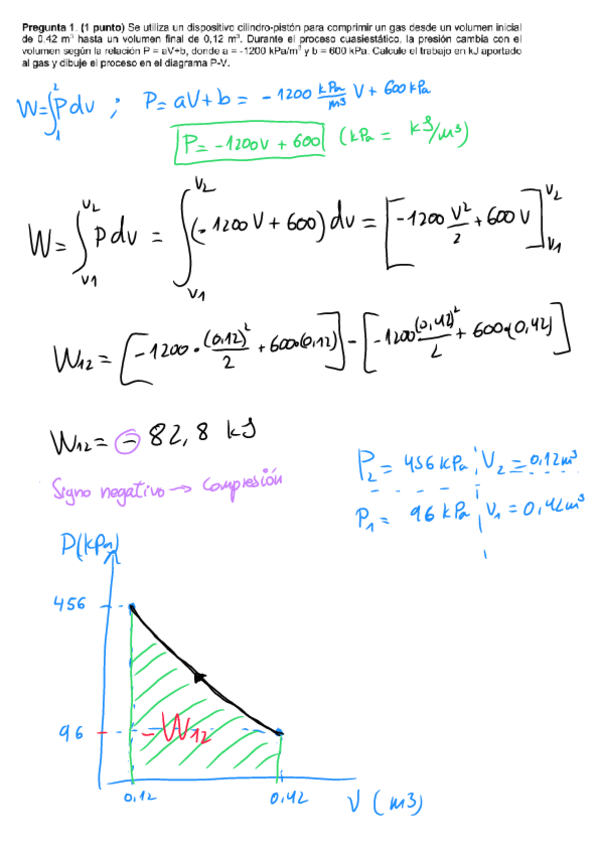 Pregunta 1. (1 punto) Se utiliza un dispositivo cilindro-pistón para comprimir un gas desde un volumen inicial
de 0.42 m³ hasta un volumen final de 0,12 m³. Durante el proceso cuasiestático, la presión cambia con el
volumen según la relación P = aV+b, donde a = -1200 kPa/m³ y b = 600 kPa. Calcule el trabajo en kJ aportado
al gas y dibuje el proceso en el diagrama P-V.
W=∫₁² P dv ; P= aV+b = -1200 kPa/m³ V + 600 kPa
P= -1200V + 600 (kPa = kJ/m³)
W= ∫_{V1}^{V2} P dv = ∫_{V1}^{V2} (-1200V + 600) dv = [-1200 V²/2 + 600 V]_{V1}^{V2}
W12 = [-1200 · (0,12)²/2 + 600·(0,12)] - [-1200 (0,42)²/2 + 600·(0,42)]
W12 = - 82,8 kJ
Signo negativo → Compresión
P2 = 456 kPa ; V2 = 0,12 m³
P1 = 96 kPa ; V1 = 0,42 m³
P(kPa)
456
96
-W12
0,12 0,42 V (m3)